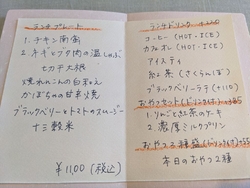 ランチプレート
1. チキン南蛮
2. ネギとブタ肉の温しゃぶ
切干大根
焼れんこんの白和え
かぼちゃの甘辛焼
ブラックベリーとトマトのスムージー
十三穀米
¥1100 (税込)
ランチドリンク
コーヒー (HOT・ICE)
カフェオレ (HOT・ICE)
アイスティ
紅茶 (さくらんぼ)
ブラックベリーラテ (+110)
おやつセット
1. りんごとさつ芋のケーキ
2. 濃厚ミルクプリン
おやつ2種盛
本日のおやつ2種